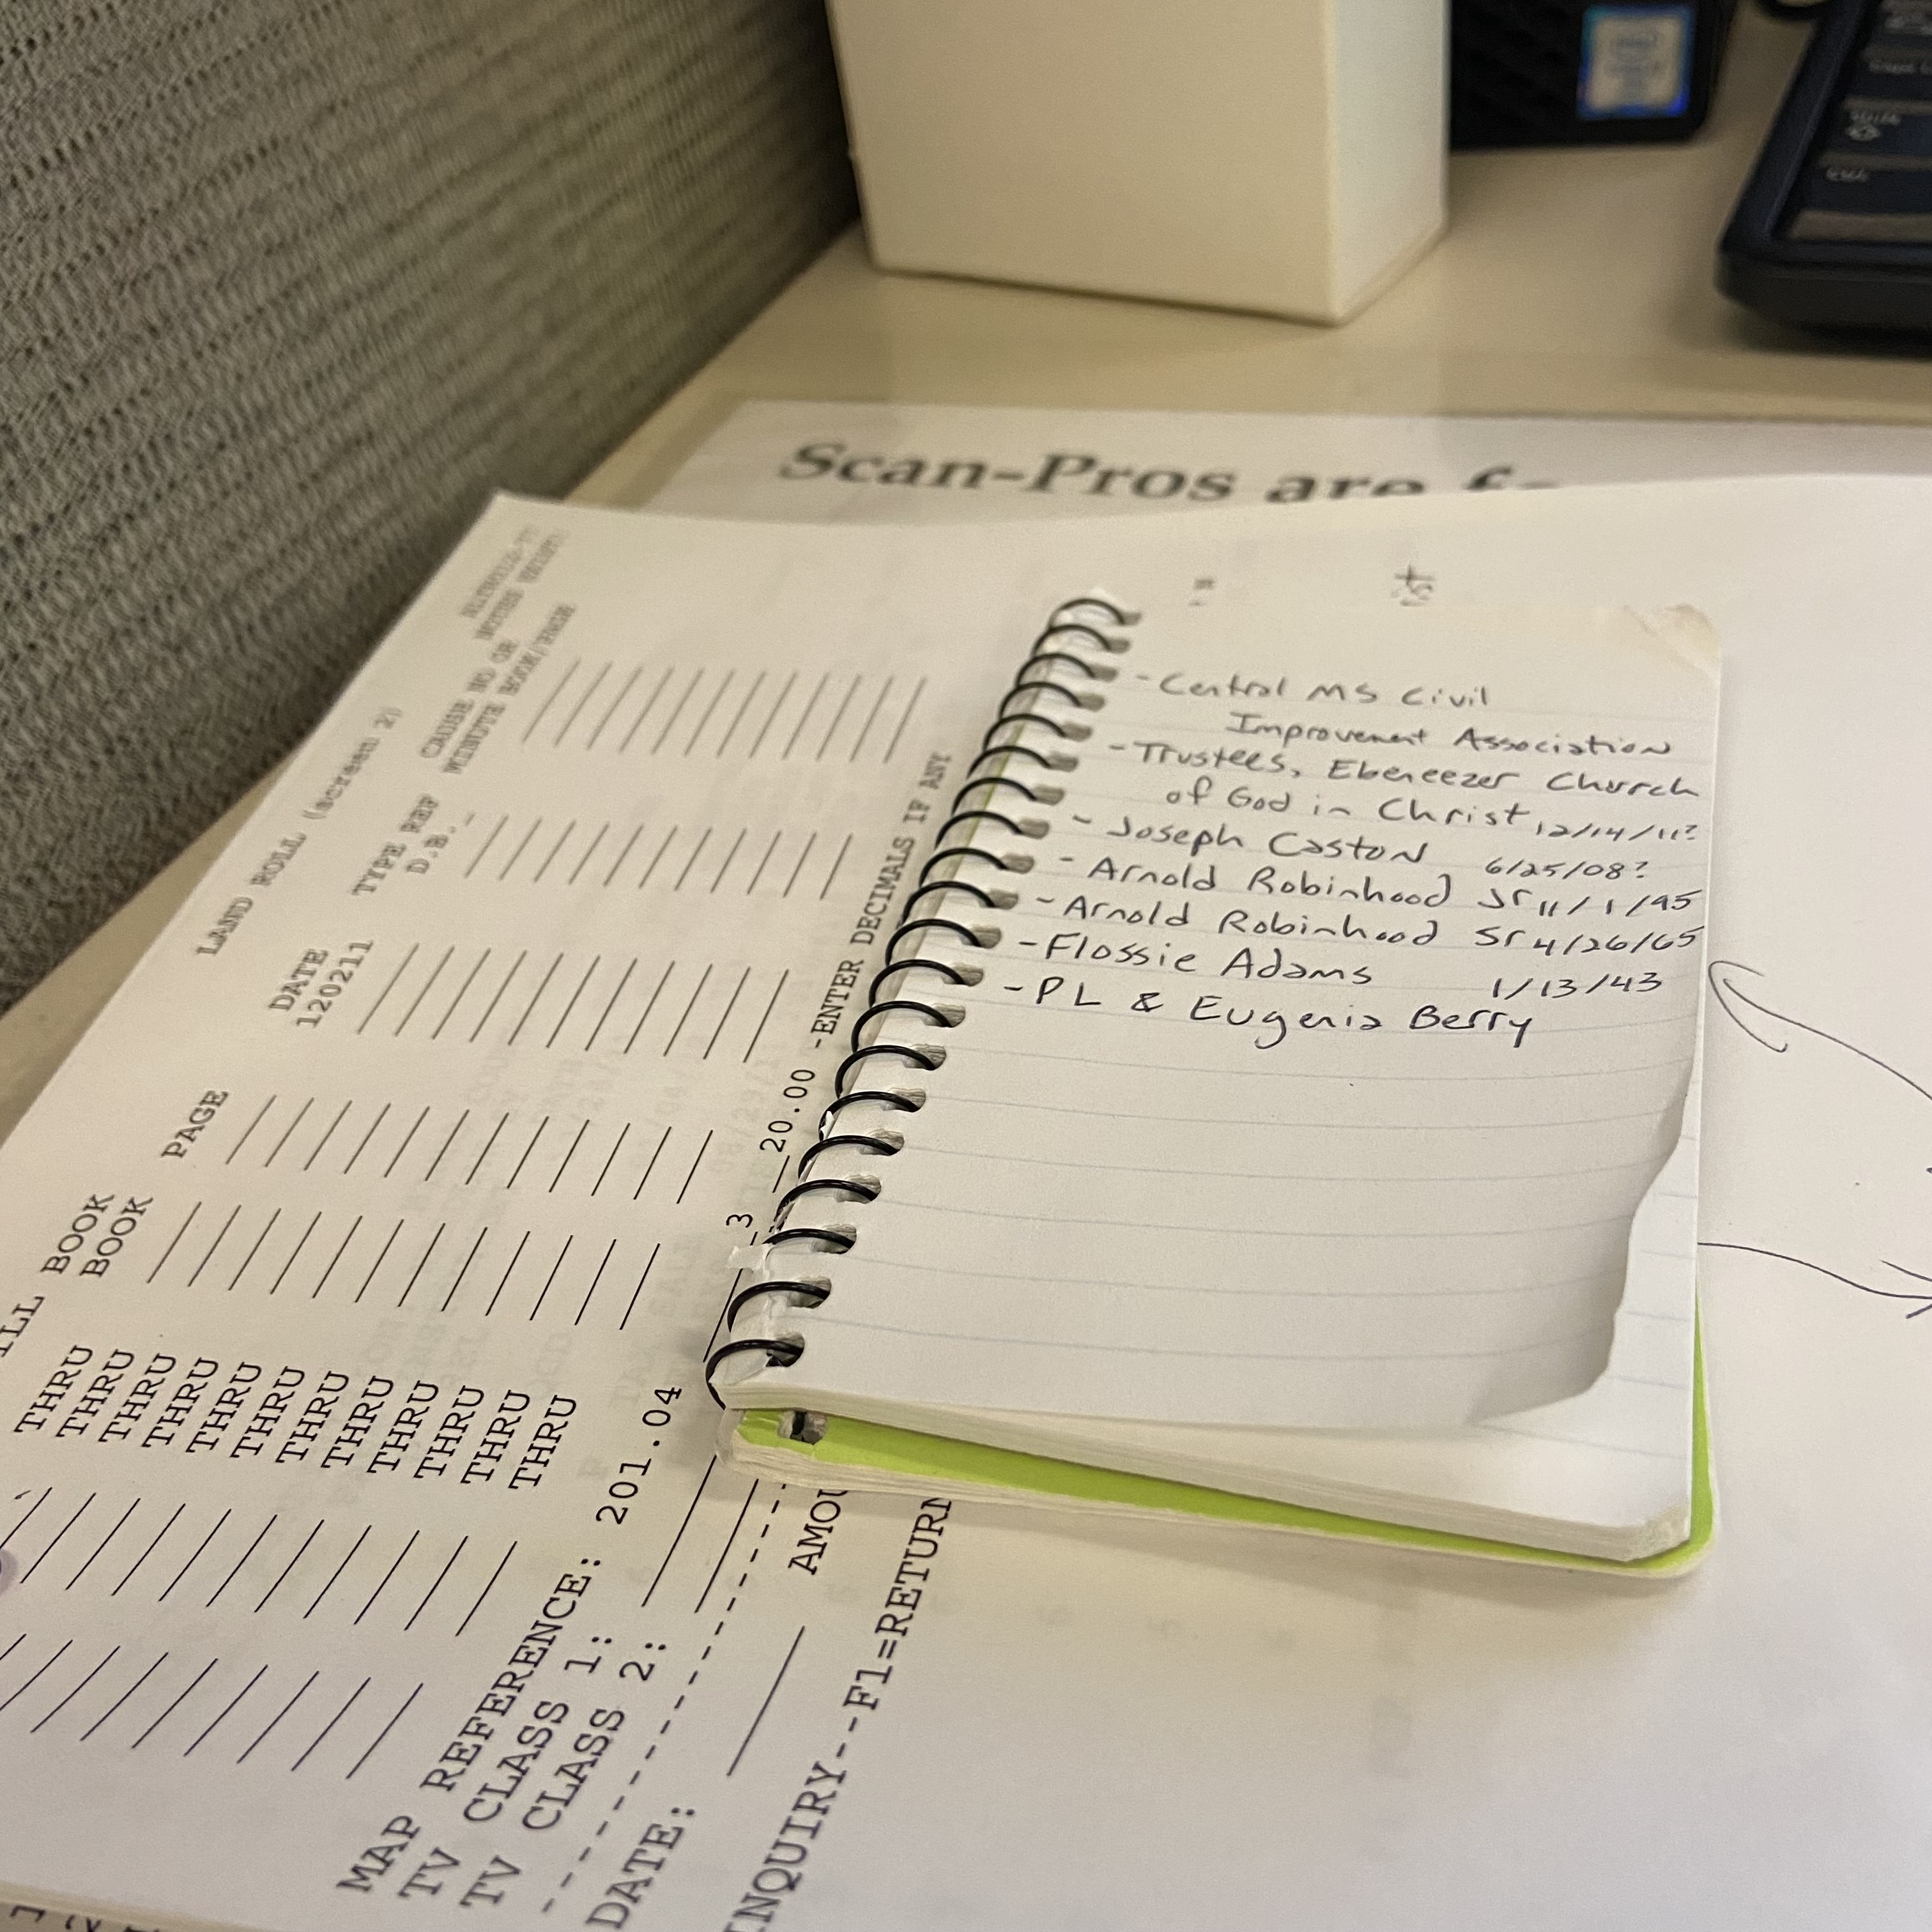 Scan-Pros are
- Central MS Civil
Improvement Association
- Trustees, Ebeneezer Church
of God in Christ 12/14/11?
- Joseph Caston 6/25/08?
- Arnold Robinhood Jr 11/1/95
- Arnold Robinhood Sr 4/26/65
- Flossie Adams 1/13/43
- PL & Eugenia Berry
LAND ROLL (screen 2)
CAUSE NO OR
MINUTE BOOK/PAGE
TYPE REF
D.B.
DATE
120211
PAGE
BOOK
BOOK
THRU
THRU
THRU
THRU
THRU
THRU
THRU
THRU
THRU
THRU
THRU
THRU
MAP REFERENCE: 201.04 3 20.00 -ENTER DECIMALS IF ANY
TV CLASS 1:
TV CLASS 2:
DATE:
INQUIRY--F1=RETURN